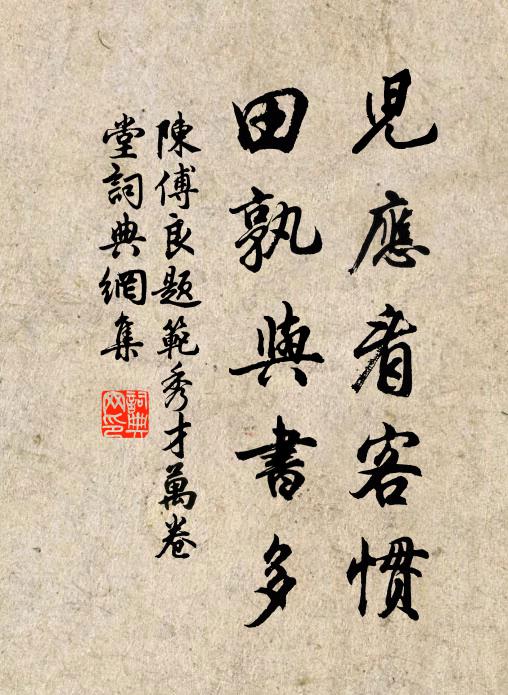 兒應看客慣
田孰與書多
陳傅良題範秀才萬卷
堂詞典網集
詞典網印